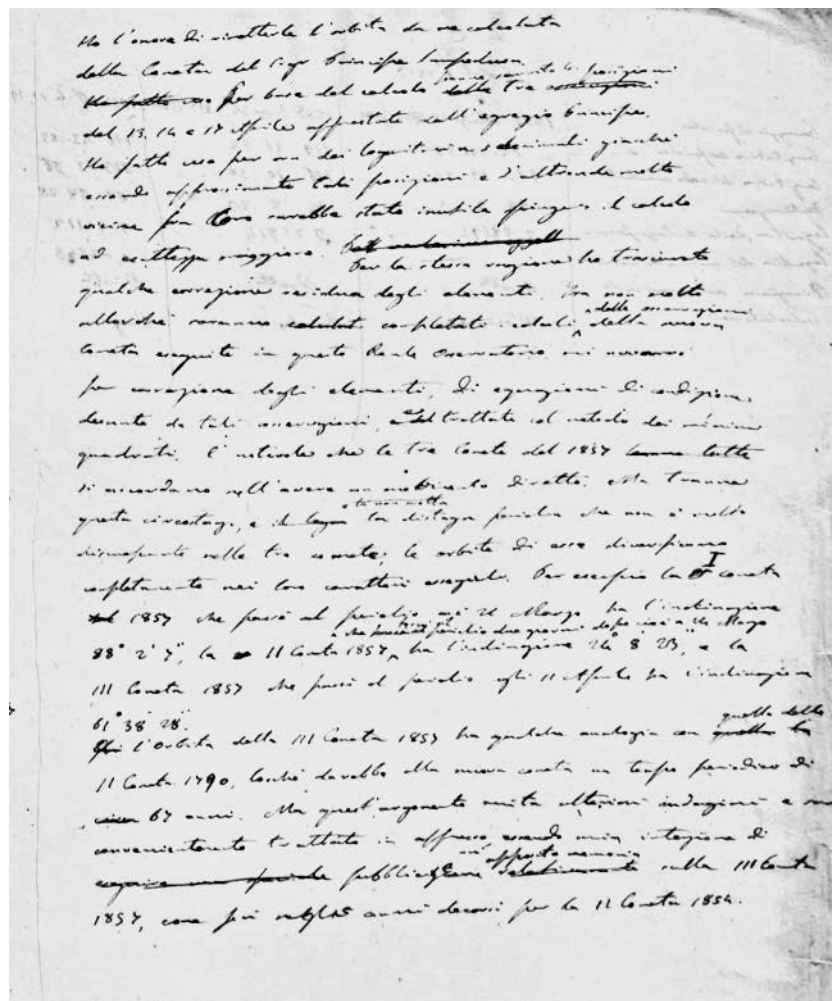 Ho l'onore di rimetterle l'orbita da me calcolata
della Cometa del Sigr Principe
mi sono servito le posizioni
Ho fatto uso Per base del calcolo delle tre osservazioni
del 13, 14 e 17 Aprile apprestate dall'egregio Principe.
Ho fatto uso per ora dei logaritmi a decimali giacchè
essendo approssimate tali posizioni e d'altronde molto
vicine fra loro sarebbe stato inutile spingere il calcolo
ad esattezza maggiore.
Per la stessa ragione ho trascurato
qualche correzione residua degli elementi. Fra non molto
allorchè saranno calcolati completati i calcoli della nuova
delle osservazioni
Cometa eseguite in questo Reale Osservatorio mi
per correzione degli elementi, di equazioni di condizione
desunte da tali osservazioni, e trattate col metodo dei minimi
quadrati. È notevole che le tre Comete del 1857 hanno tutte
si accordano nell'avere un movimento diretto. Ma tranne
questa circostanza, e la distanza perielia che non è molto
e la non molta
disuguale nelle tre comete; le orbite di esse diversificano
completamente nei loro caratteri. Per esempio la I Cometa
del 1857 che passò al perielio ai 21 Marzo ha l'inclinazione
che passò al perielio due giorni dopo cioè a Marzo
88° 2' 7", la II Cometa 1857, ha l'inclinazione 24° 8' 23", e la
III Cometa 1857 che passò al perielio agli 11 Aprile ha l'inclinazione
61° 38' 28".
L'Orbita della III Cometa 1857 ha qualche analogia con quella la
quella della
II Cometa 1790, locchè darebbe alla nuova cometa un tempo periodico di
circa 67 anni. Ma quest'argomento merita ulteriori indagini e
convenientemente trattato in appresso essendo mia intenzione di
un' apposita memoria
pubblicare relativamente sulla III Cometa
1857, come feci negli anni decorsi per la II Cometa 1854.